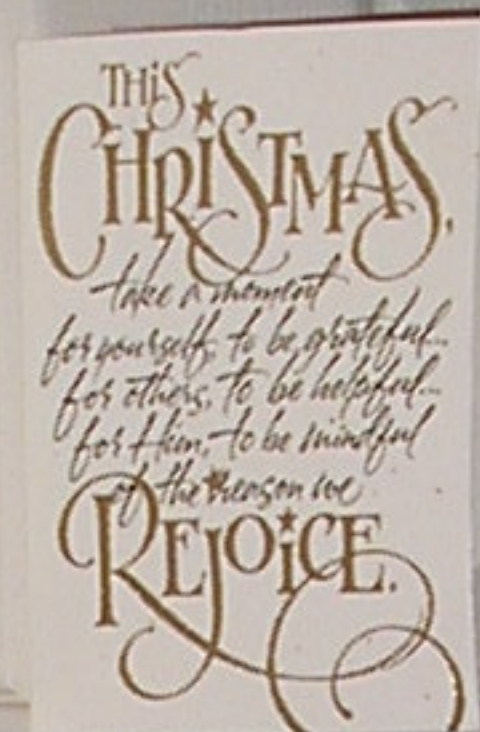 THIS
CHRISTMAS,
take a moment
for yourself, to be grateful...
for others, to be helpful...
for Him, to be mindful
of the reason we
REJOICE.